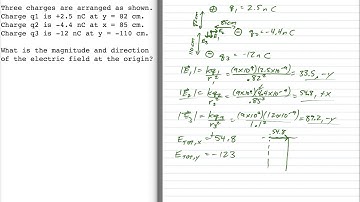 Three charges are arranged as shown.
Charge q1 is +2.5 nC at y = 82 cm.
Charge q2 is -4.4 nC at x = 85 cm.
Charge q3 is -12 nC at y = -110 cm.
What is the magnitude and direction
of the electric field at the origin?
q₁ = 2.5 nC
85cm
q₂ = -4.4nC
110cm
q₃ = -12nC
|E₁| = kq₁/r₁² = (9x10⁹)(2.5x10⁻⁹)/.82² = 33.5, -y
|E₂| = kq₂/r₂² = (9x10⁹)(4.4x10⁻⁹)/.85² = 54.8, +x
|E₃| = kq₃/r₃² = (9x10⁹)(12x10⁻⁹)/1.1² = 89.2, -y
E_TOT,x = +54.8
54.8
E_TOT,y = -123